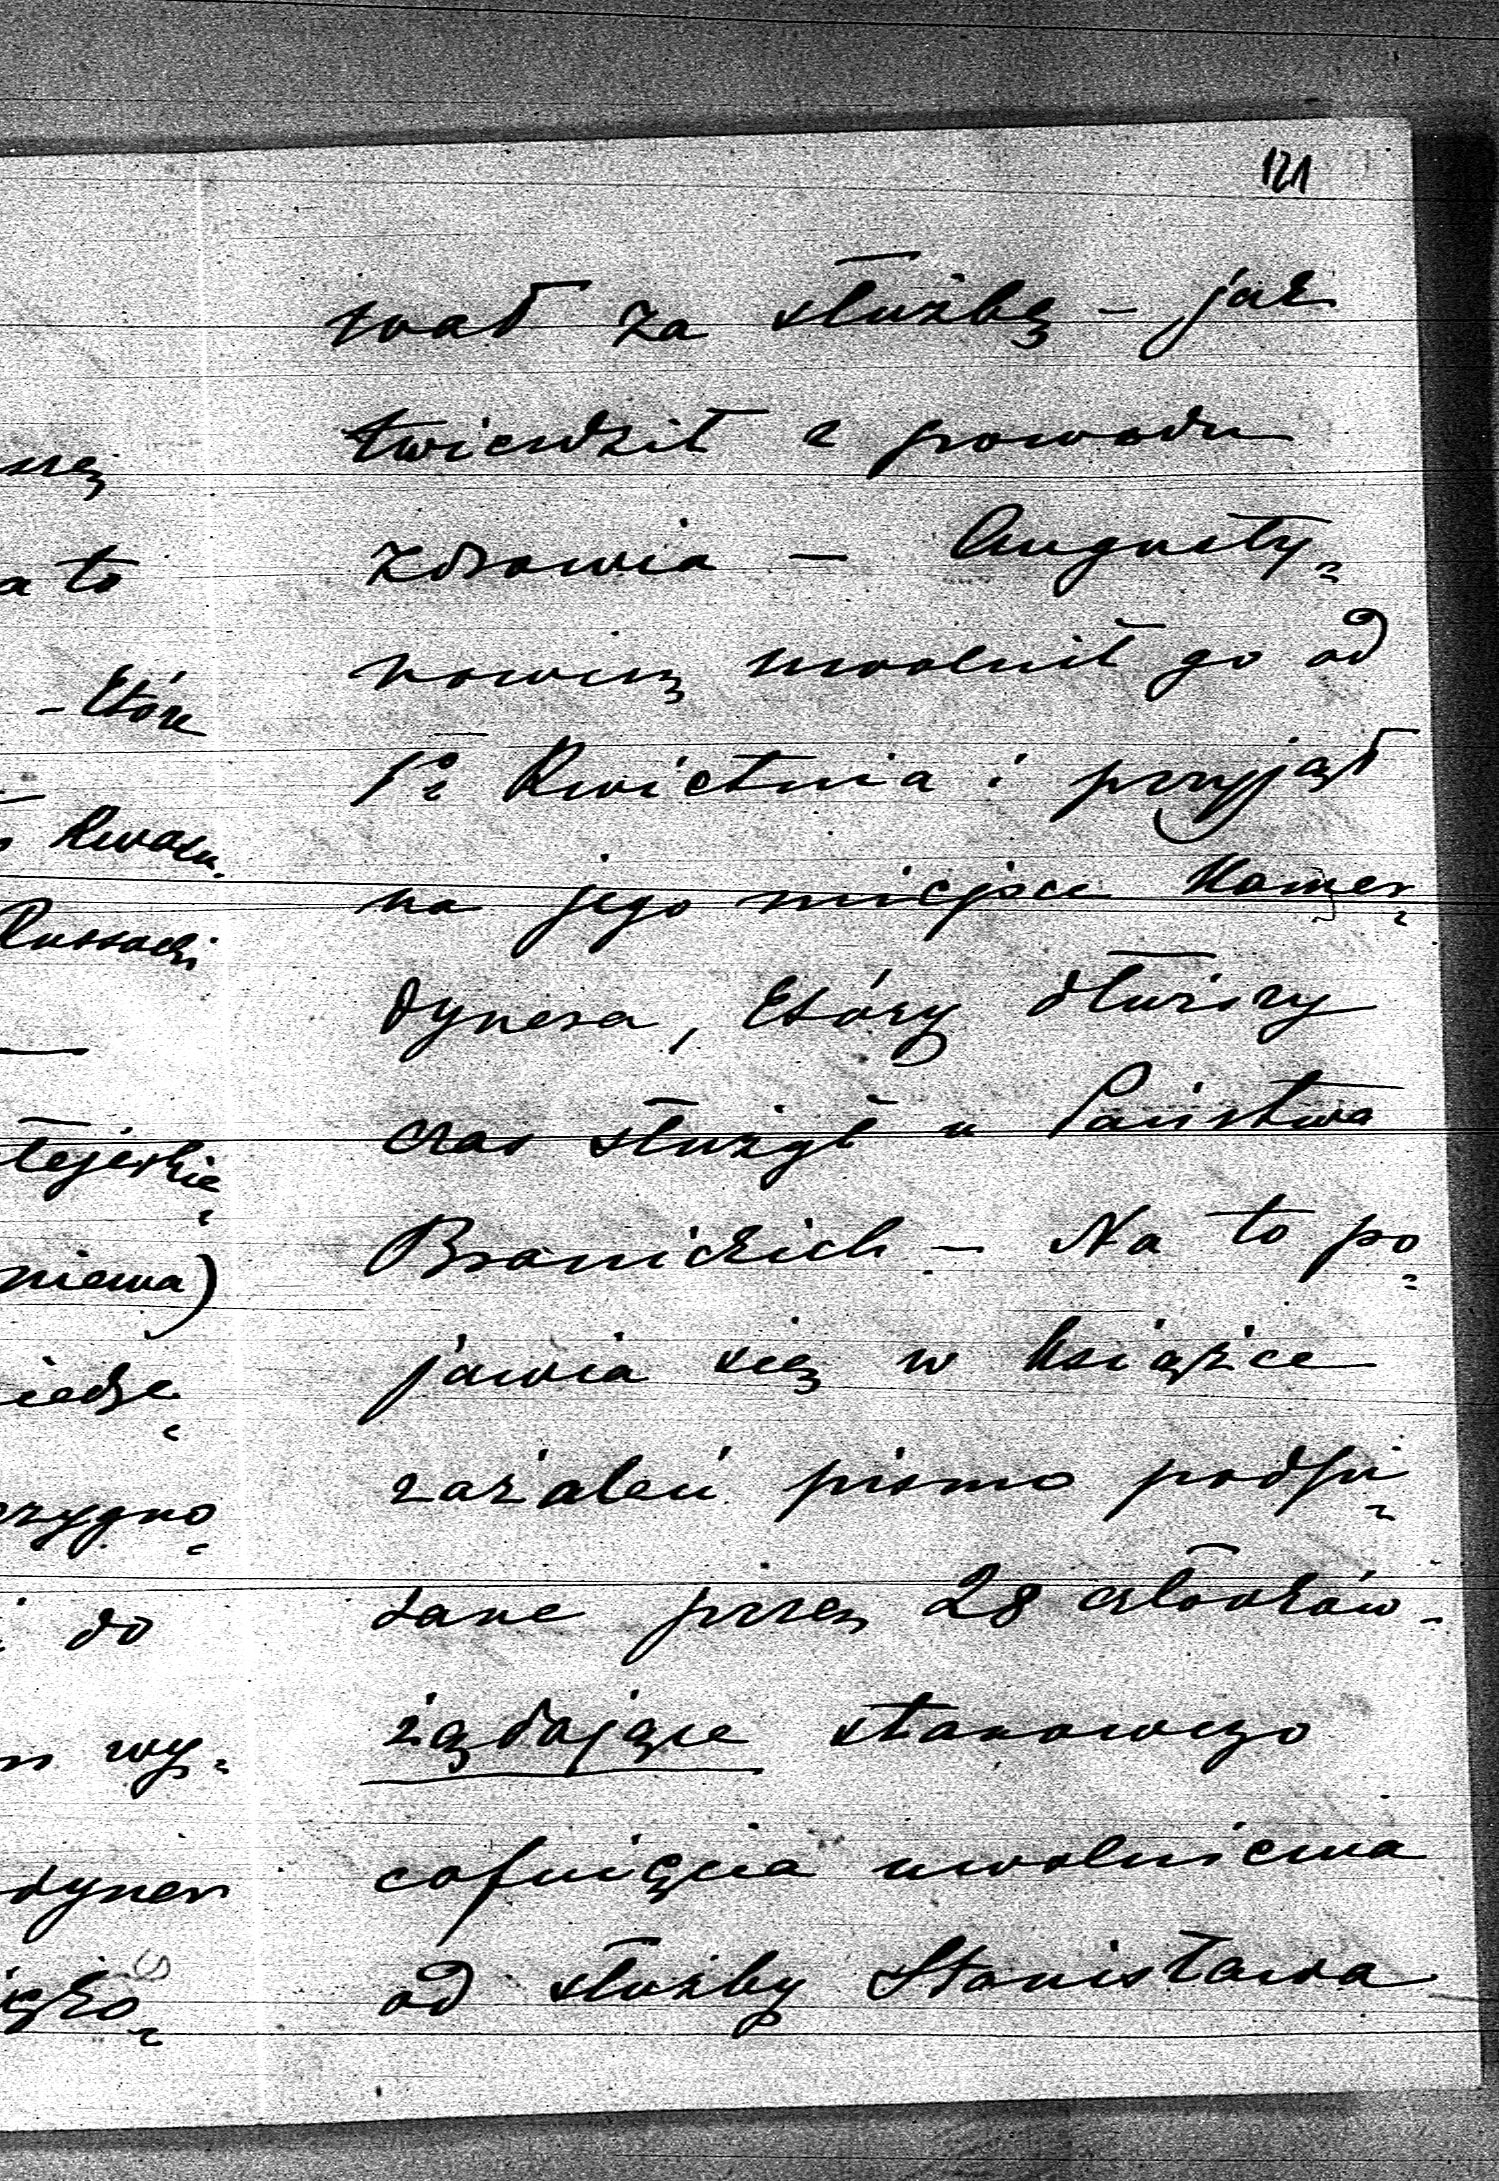 121
wał za służbę - jak
twierdził z powodu
zdrowia - Augusty=
nowicz uwolnił go od
1º Kwietnia i przyjął
na jego miejsce Kamer=
dynera, który dłuższy
czas służył u Państwa
Branickich - Na to po=
jawia się w książce
zażaleń pismo podpi=
sane przez 28 członków -
żądające stanowczo
cofnięcia uwolnienia
od służby Stanisława
a to
- któr
niewa)
do
wy=
dyner